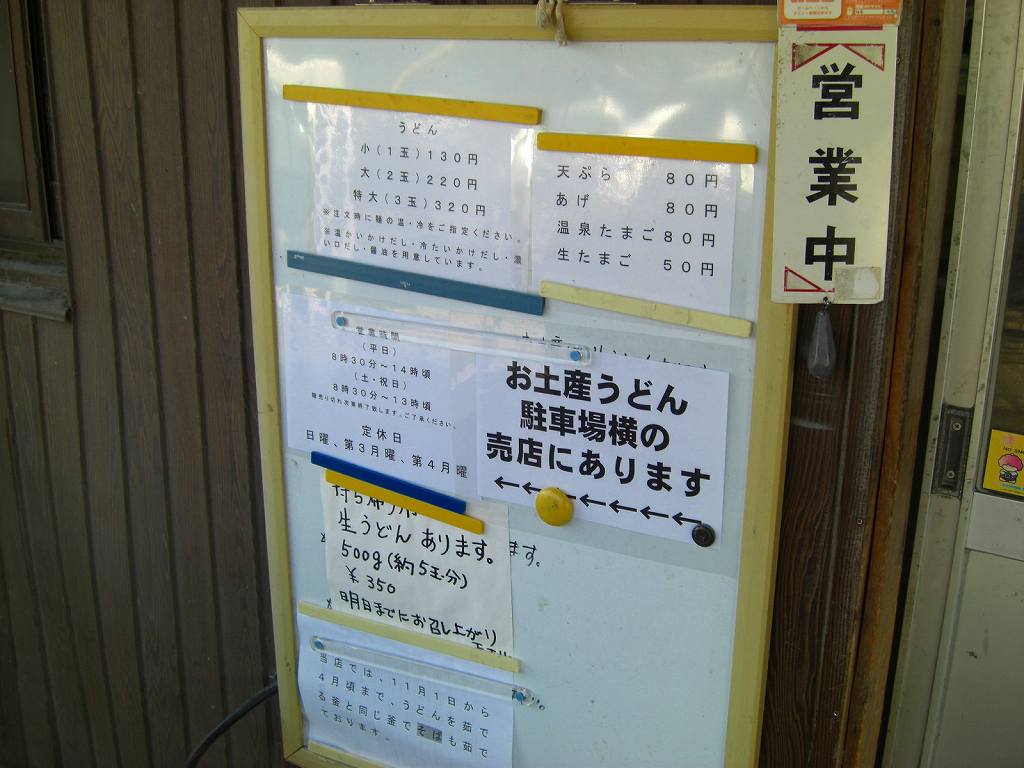 営業中
うどん
小(1玉)130円
大(2玉)220円
特大(3玉)320円
※注文時に麺の温・冷をご指定ください。
※温かいかけだし・冷たいかけだし・濃
い口だし・醤油を用意しています。
天ぷら 80円
あげ 80円
温泉たまご80円
生たまご 50円
営業時間
(平日)
8時30分～14時頃
(土・祝日)
8時30分～13時頃
麺売り切れ次第終了致します。ご了承ください。
定休日
日曜、第3月曜、第4月曜
お土産うどん
駐車場横の
売店にあります
←←←←←←←
持ち帰り用
生うどんあります。
500g(約5玉分)
¥350
明日までにお召し上がり
ます。
当店では、11月1日から
4月頃まで、うどんを茹で
る釜と同じ釜でそばも茹で
ております。